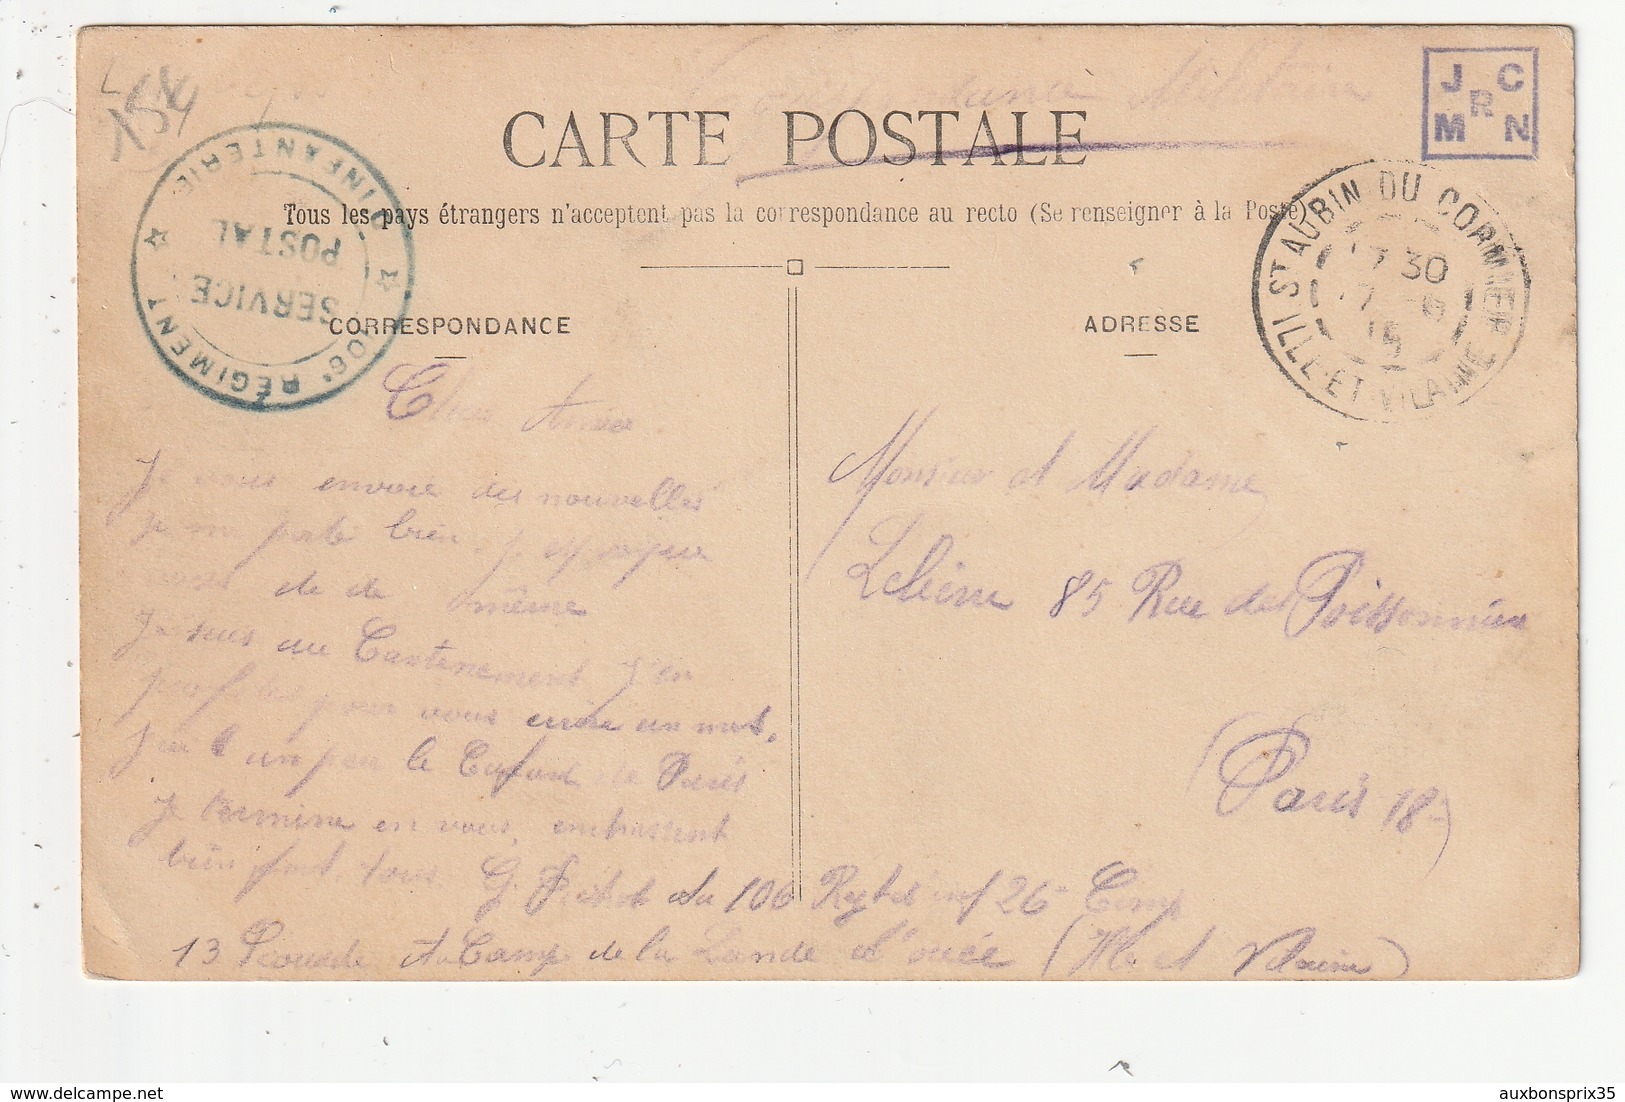 154
Militaire
CARTE POSTALE
J C
R
M N
Tous les pays étrangers n'acceptent pas la correspondance au recto (Se renseigner à la Poste)
106e RÉGIMENT D'INFANTERIE
SERVICE POSTAL
ST AUBIN DU CORMIER
ILLE-ET-VILAINE
17 30
15
CORRESPONDANCE
ADRESSE
Chers Amies
Je vous envoie des nouvelles
je me porte bien. j'
vous de de même
Je suis au Cantenement J'en
profite pour vous un mot.
J'ai un peu le Cafard de Paris
Je termine en vous embrassent
bien fort tous G. du 106 Regt inf 26e Comp
13 Au Camp de la Lande d'ouée (Ille et Vilaine)
Monsieur et Madame
85 Rue des Poissonnière
(Paris 18e)
auxbonsprix35